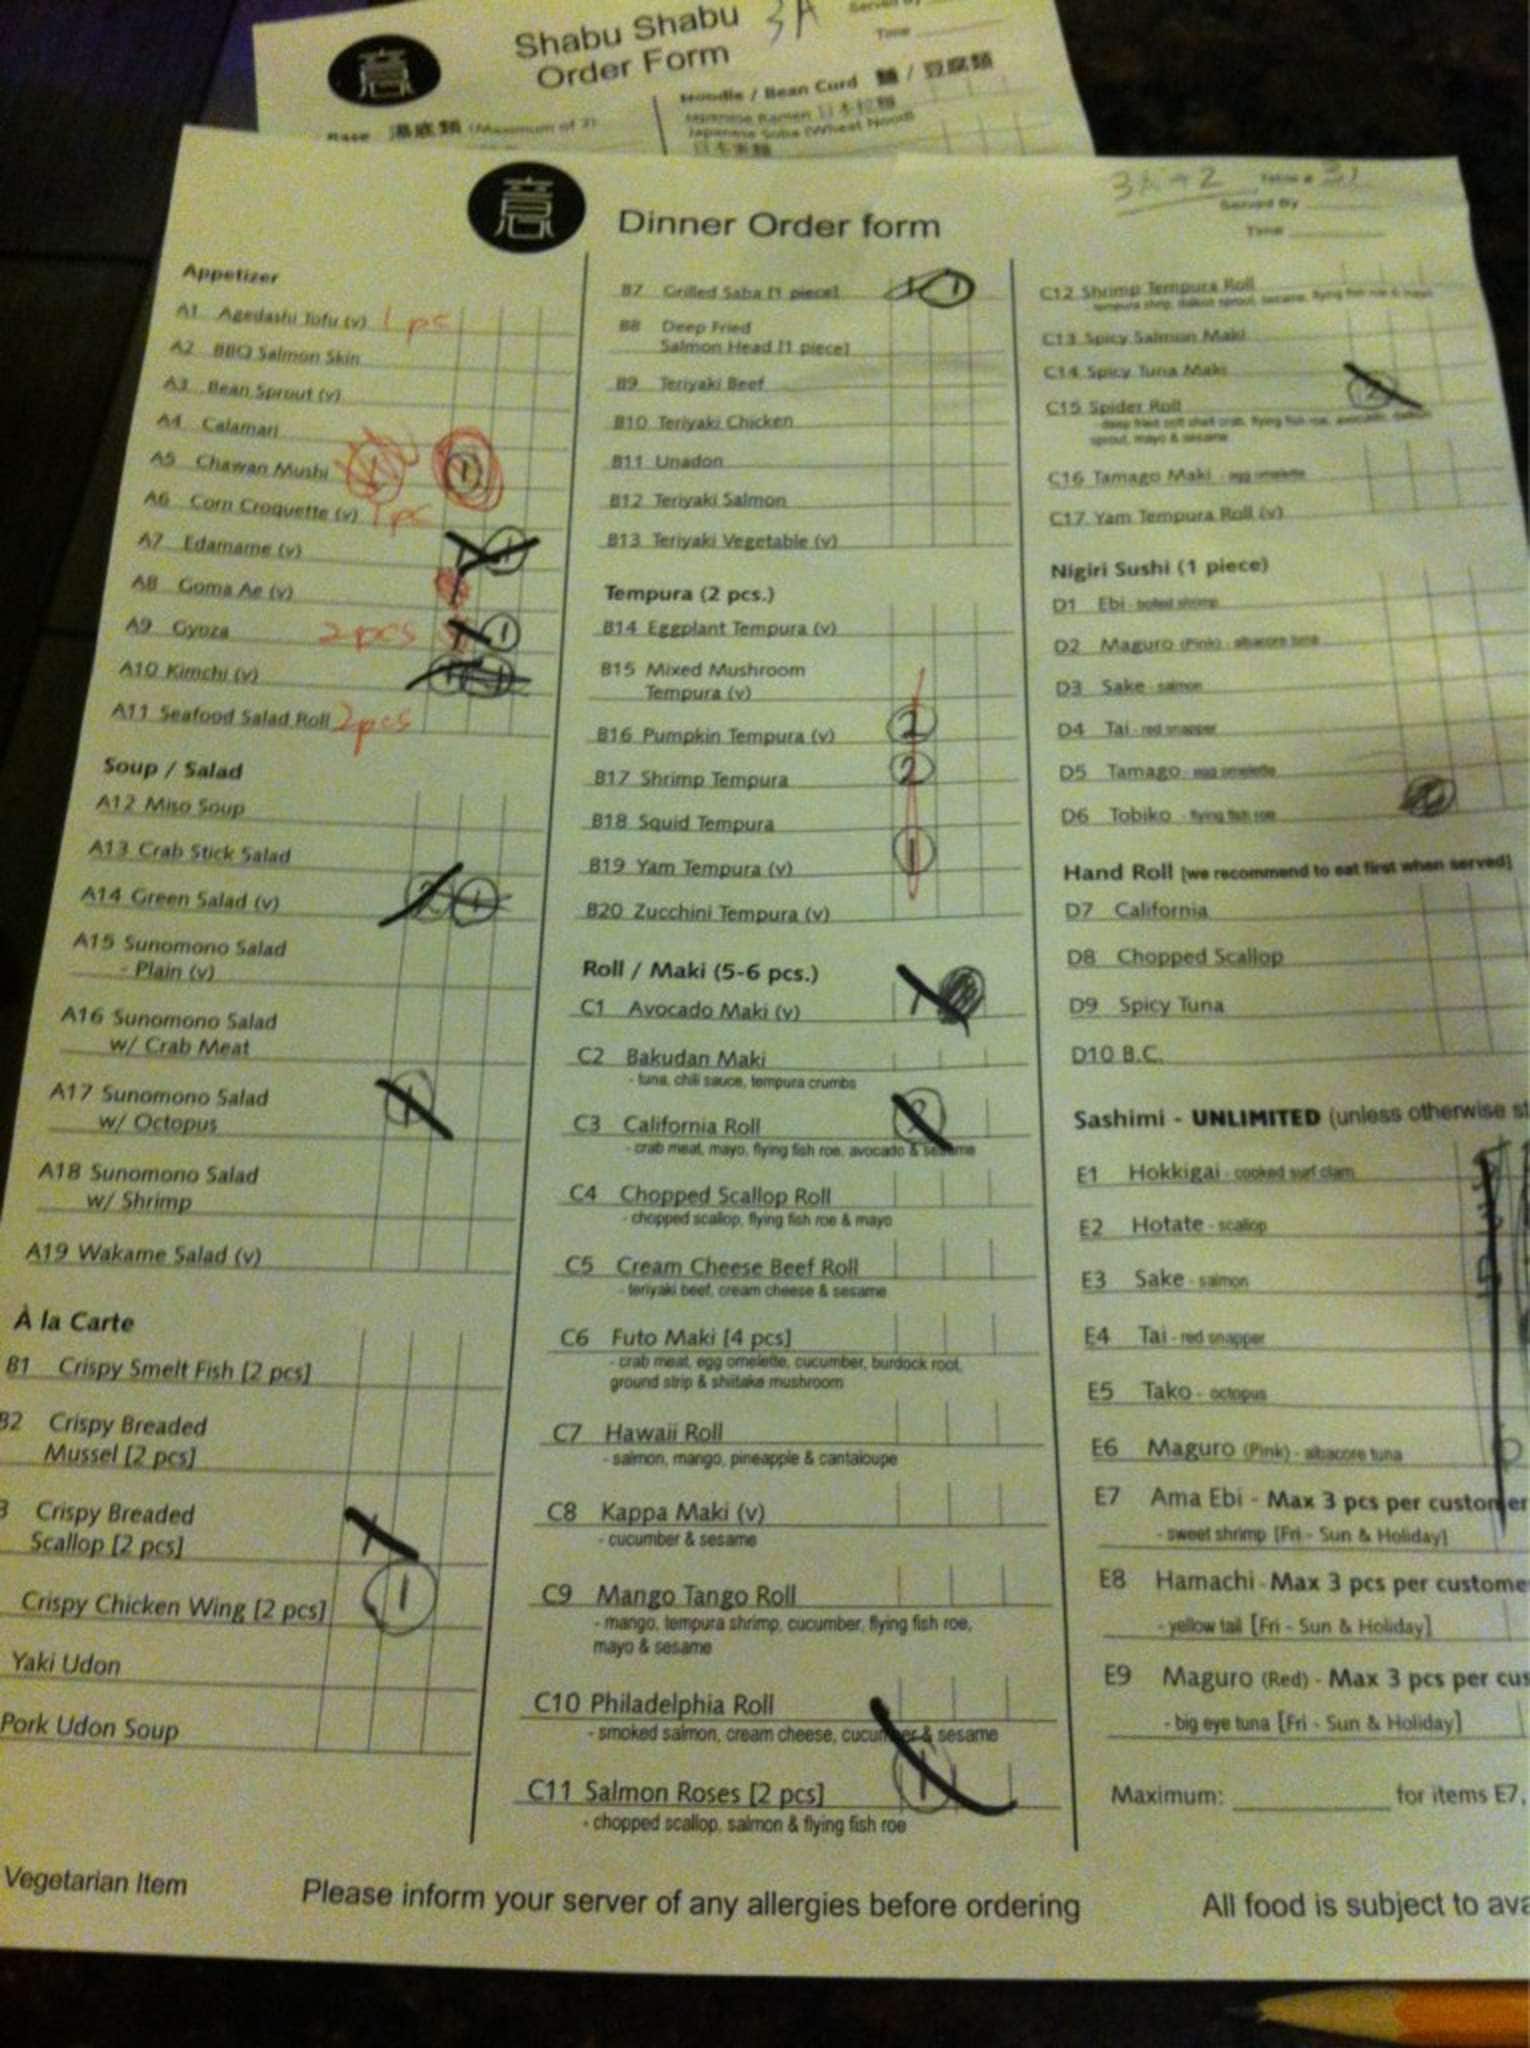 Shabu Shabu 3A
Order Form
Served By
Time
意
Base 湯底類 (Maximum of 2)
Noodle / Bean Curd 麵 / 豆腐類
Japanese Ramen 日本拉麵
Japanese Soba (Wheat Noodl
意
Dinner Order form
Table #
Served By
Time
Appetizer
A1 Agedashi Tofu (v) 1 pc
A2 BBQ Salmon Skin
A3 Bean Sprout (v)
A4 Calamari
A5 Chawan Mushi 1
A6 Corn Croquette (v) 1 pc
A7 Edamame (v) 1 1
A8 Goma Ae (v)
A9 Gyoza 2 pcs 1 1
A10 Kimchi (v)
A11 Seafood Salad Roll 2 pcs
Soup / Salad
A12 Miso Soup
A13 Crab Stick Salad
A14 Green Salad (v) 2 1
A15 Sunomono Salad
- Plain (v)
A16 Sunomono Salad
w/ Crab Meat
A17 Sunomono Salad 1
w/ Octopus
A18 Sunomono Salad
w/ Shrimp
A19 Wakame Salad (v)
À la Carte
B1 Crispy Smelt Fish [2 pcs]
B2 Crispy Breaded
Mussel [2 pcs]
3 Crispy Breaded 1
Scallop [2 pcs]
Crispy Chicken Wing [2 pcs] 1
Yaki Udon
Pork Udon Soup
B7 Grilled Saba [1 piece] 1
B8 Deep Fried
Salmon Head [1 piece]
B9 Teriyaki Beef
B10 Teriyaki Chicken
B11 Unadon
B12 Teriyaki Salmon
B13 Teriyaki Vegetable (v)
Tempura (2 pcs.)
B14 Eggplant Tempura (v)
B15 Mixed Mushroom
Tempura (v)
B16 Pumpkin Tempura (v) 2
B17 Shrimp Tempura 2
B18 Squid Tempura
B19 Yam Tempura (v) 1
B20 Zucchini Tempura (v)
Roll / Maki (5-6 pcs.)
C1 Avocado Maki (v) 1
C2 Bakudan Maki
- tuna, chili sauce, tempura crumbs
C3 California Roll 2
- crab meat, mayo, flying fish roe, avocado & sesame
C4 Chopped Scallop Roll
- chopped scallop, flying fish roe & mayo
C5 Cream Cheese Beef Roll
- teriyaki beef, cream cheese & sesame
C6 Futo Maki [4 pcs]
- crab meat, egg omelette, cucumber, burdock root,
ground strip & shiitake mushroom
C7 Hawaii Roll
- salmon, mango, pineapple & cantaloupe
C8 Kappa Maki (v)
- cucumber & sesame
C9 Mango Tango Roll
- mango, tempura shrimp, cucumber, flying fish roe,
mayo & sesame
C10 Philadelphia Roll
- smoked salmon, cream cheese, cucumber & sesame
C11 Salmon Roses [2 pcs] 1
- chopped scallop, salmon & flying fish roe
C12 Shrimp Tempura Roll
C13 Spicy Salmon Maki
C14 Spicy Tuna Maki
C15 Spider Roll 2
- deep fried soft shell crab, flying fish roe, avocado, daikon
sprout, mayo & sesame
C16 Tamago Maki - egg omelette
C17 Yam Tempura Roll (v)
Nigiri Sushi (1 piece)
D1 Ebi - boiled shrimp
D2 Maguro (Pink) - albacore tuna
D3 Sake - salmon
D4 Tai - red snapper
D5 Tamago - egg omelette
D6 Tobiko - flying fish roe
Hand Roll [we recommend to eat first when served]
D7 California
D8 Chopped Scallop
D9 Spicy Tuna
D10 B.C.
Sashimi - UNLIMITED (unless otherwise st
E1 Hokkigai - cooked surf clam
E2 Hotate - scallop
E3 Sake - salmon
E4 Tai - red snapper
E5 Tako - octopus
E6 Maguro (Pink) - albacore tuna
E7 Ama Ebi - Max 3 pcs per customer
- sweet shrimp [Fri - Sun & Holiday]
E8 Hamachi - Max 3 pcs per custome
- yellow tail [Fri - Sun & Holiday]
E9 Maguro (Red) - Max 3 pcs per cus
- big eye tuna [Fri - Sun & Holiday]
Maximum: for items E7,
Vegetarian Item
Please inform your server of any allergies before ordering
All food is subject to ava